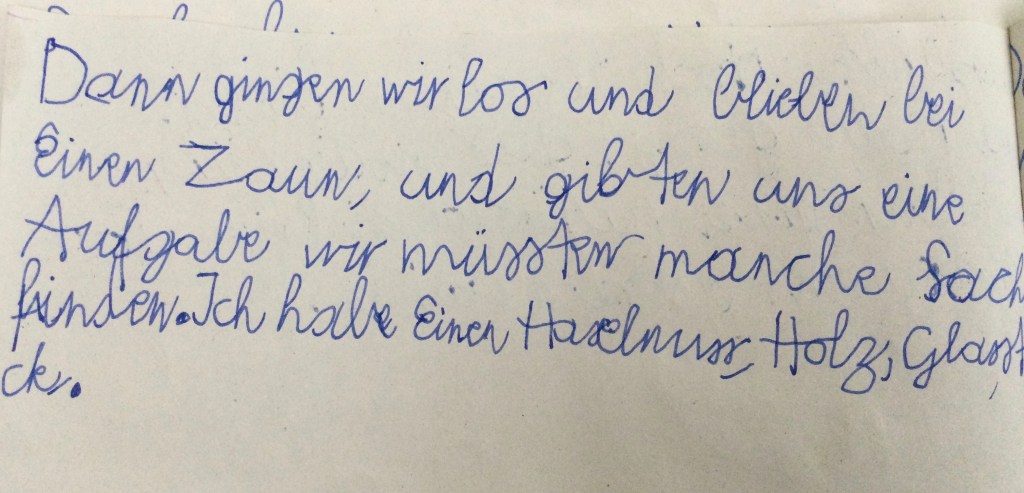 Dann gingen wir los und blieben bei
Einen Zaun, und gibten uns eine
Aufgabe wir müssten manche Sach
finden. Ich habe Einen Haselnuss, Holz, Glasst
ck.